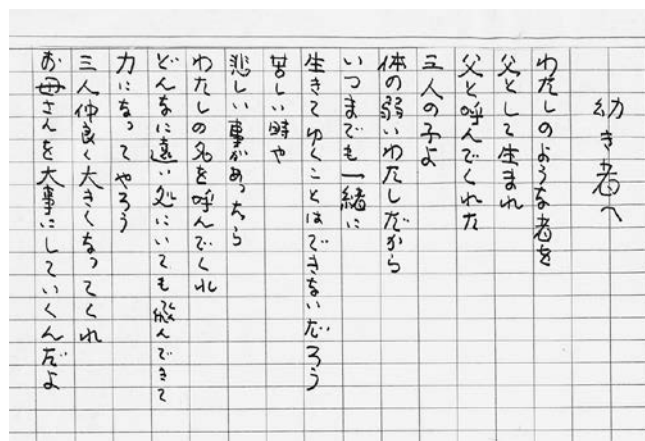 幼き者へ
わたしのような者を
父として生まれ
父と呼んでくれた
三人の子よ
体の弱いわたしだから
いつまでも一緒に
生きてゆくことはできないだろう
苦しい時や
悲しい事があったら
わたしの名を呼んでくれ
どんなに遠い処にいても飛んできて
力になってやろう
三人仲良く大きくなってくれ
お母さんを大事にしていくんだよ